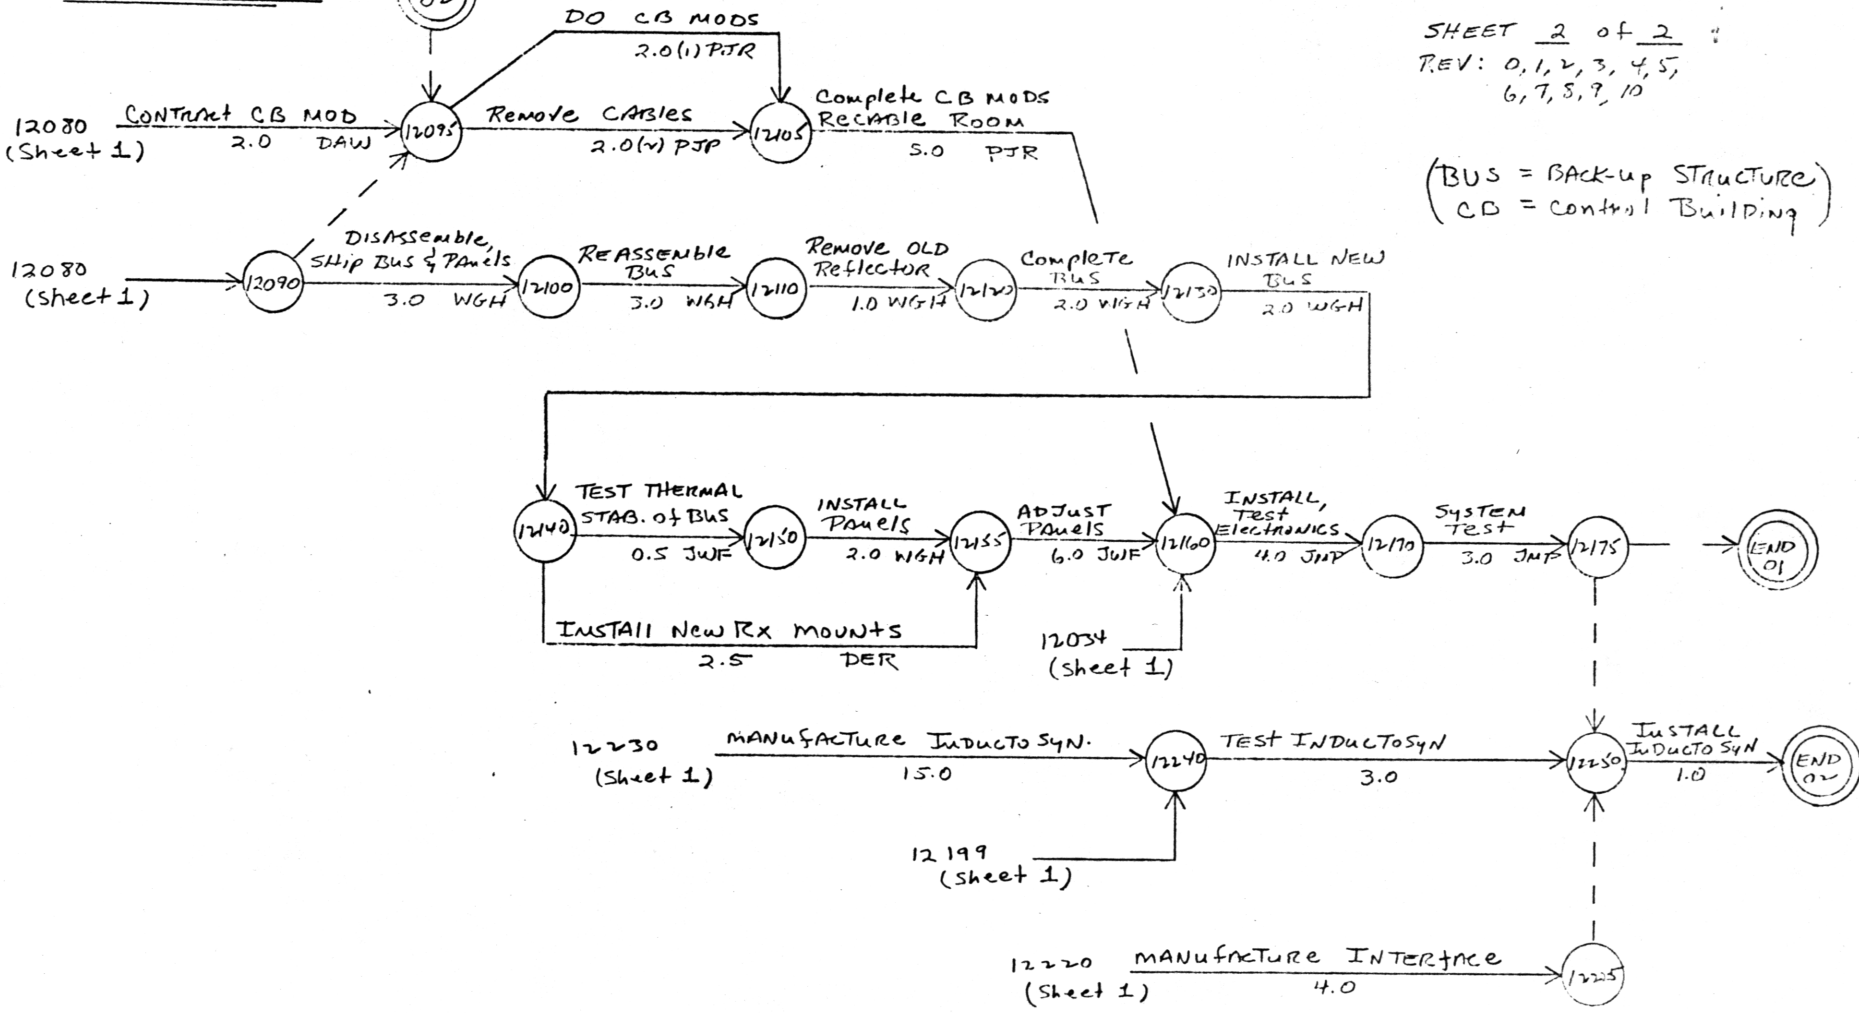 02
DO CB MODS
2.0(1) PJR
SHEET 2 of 2
REV: 0, 1, 2, 3, 4, 5,
6, 7, 8, 9, 10
12080
(Sheet 1)
CONTRACT CB MOD
2.0 DAW
12095
Remove CABles
2.0(2) PJP
12105
Complete CB MODS
RECABle ROOM
5.0 PJR
(BUS = BACK-up STRUCTURE)
(CB = Control BuilDing)
12080
(Sheet 1)
12090
DISAssemble,
SHip Bus & PAnels
3.0 WGH
12100
REASSEMBLE
BUS
3.0 WGH
12110
Remove OLD
Reflector
1.0 WGH
12120
Complete
BUS
2.0 WGH
12130
INSTALL NEW
BUS
2.0 WGH
12140
TEST THERMAL
STAB. of BUS
0.5 JWF
12150
INSTALL
PAnels
2.0 WGH
12155
ADJUST
PAnels
6.0 JWF
12160
INSTALL,
Test
Electronics
4.0 JMP
12170
SYSTEM
Test
3.0 JMP
12175
END
01
INSTAll New Rx mounts
2.5 DER
12034
(Sheet 1)
12230
(Sheet 1)
MANufACTURE INDUCTO SYN.
15.0
12240
TEST INDUCTOSYN
3.0
12250
INSTALL
INDUCTO SYN
1.0
END
02
12199
(Sheet 1)
12220
(Sheet 1)
MANufACTURE INTERfACE
4.0
12225